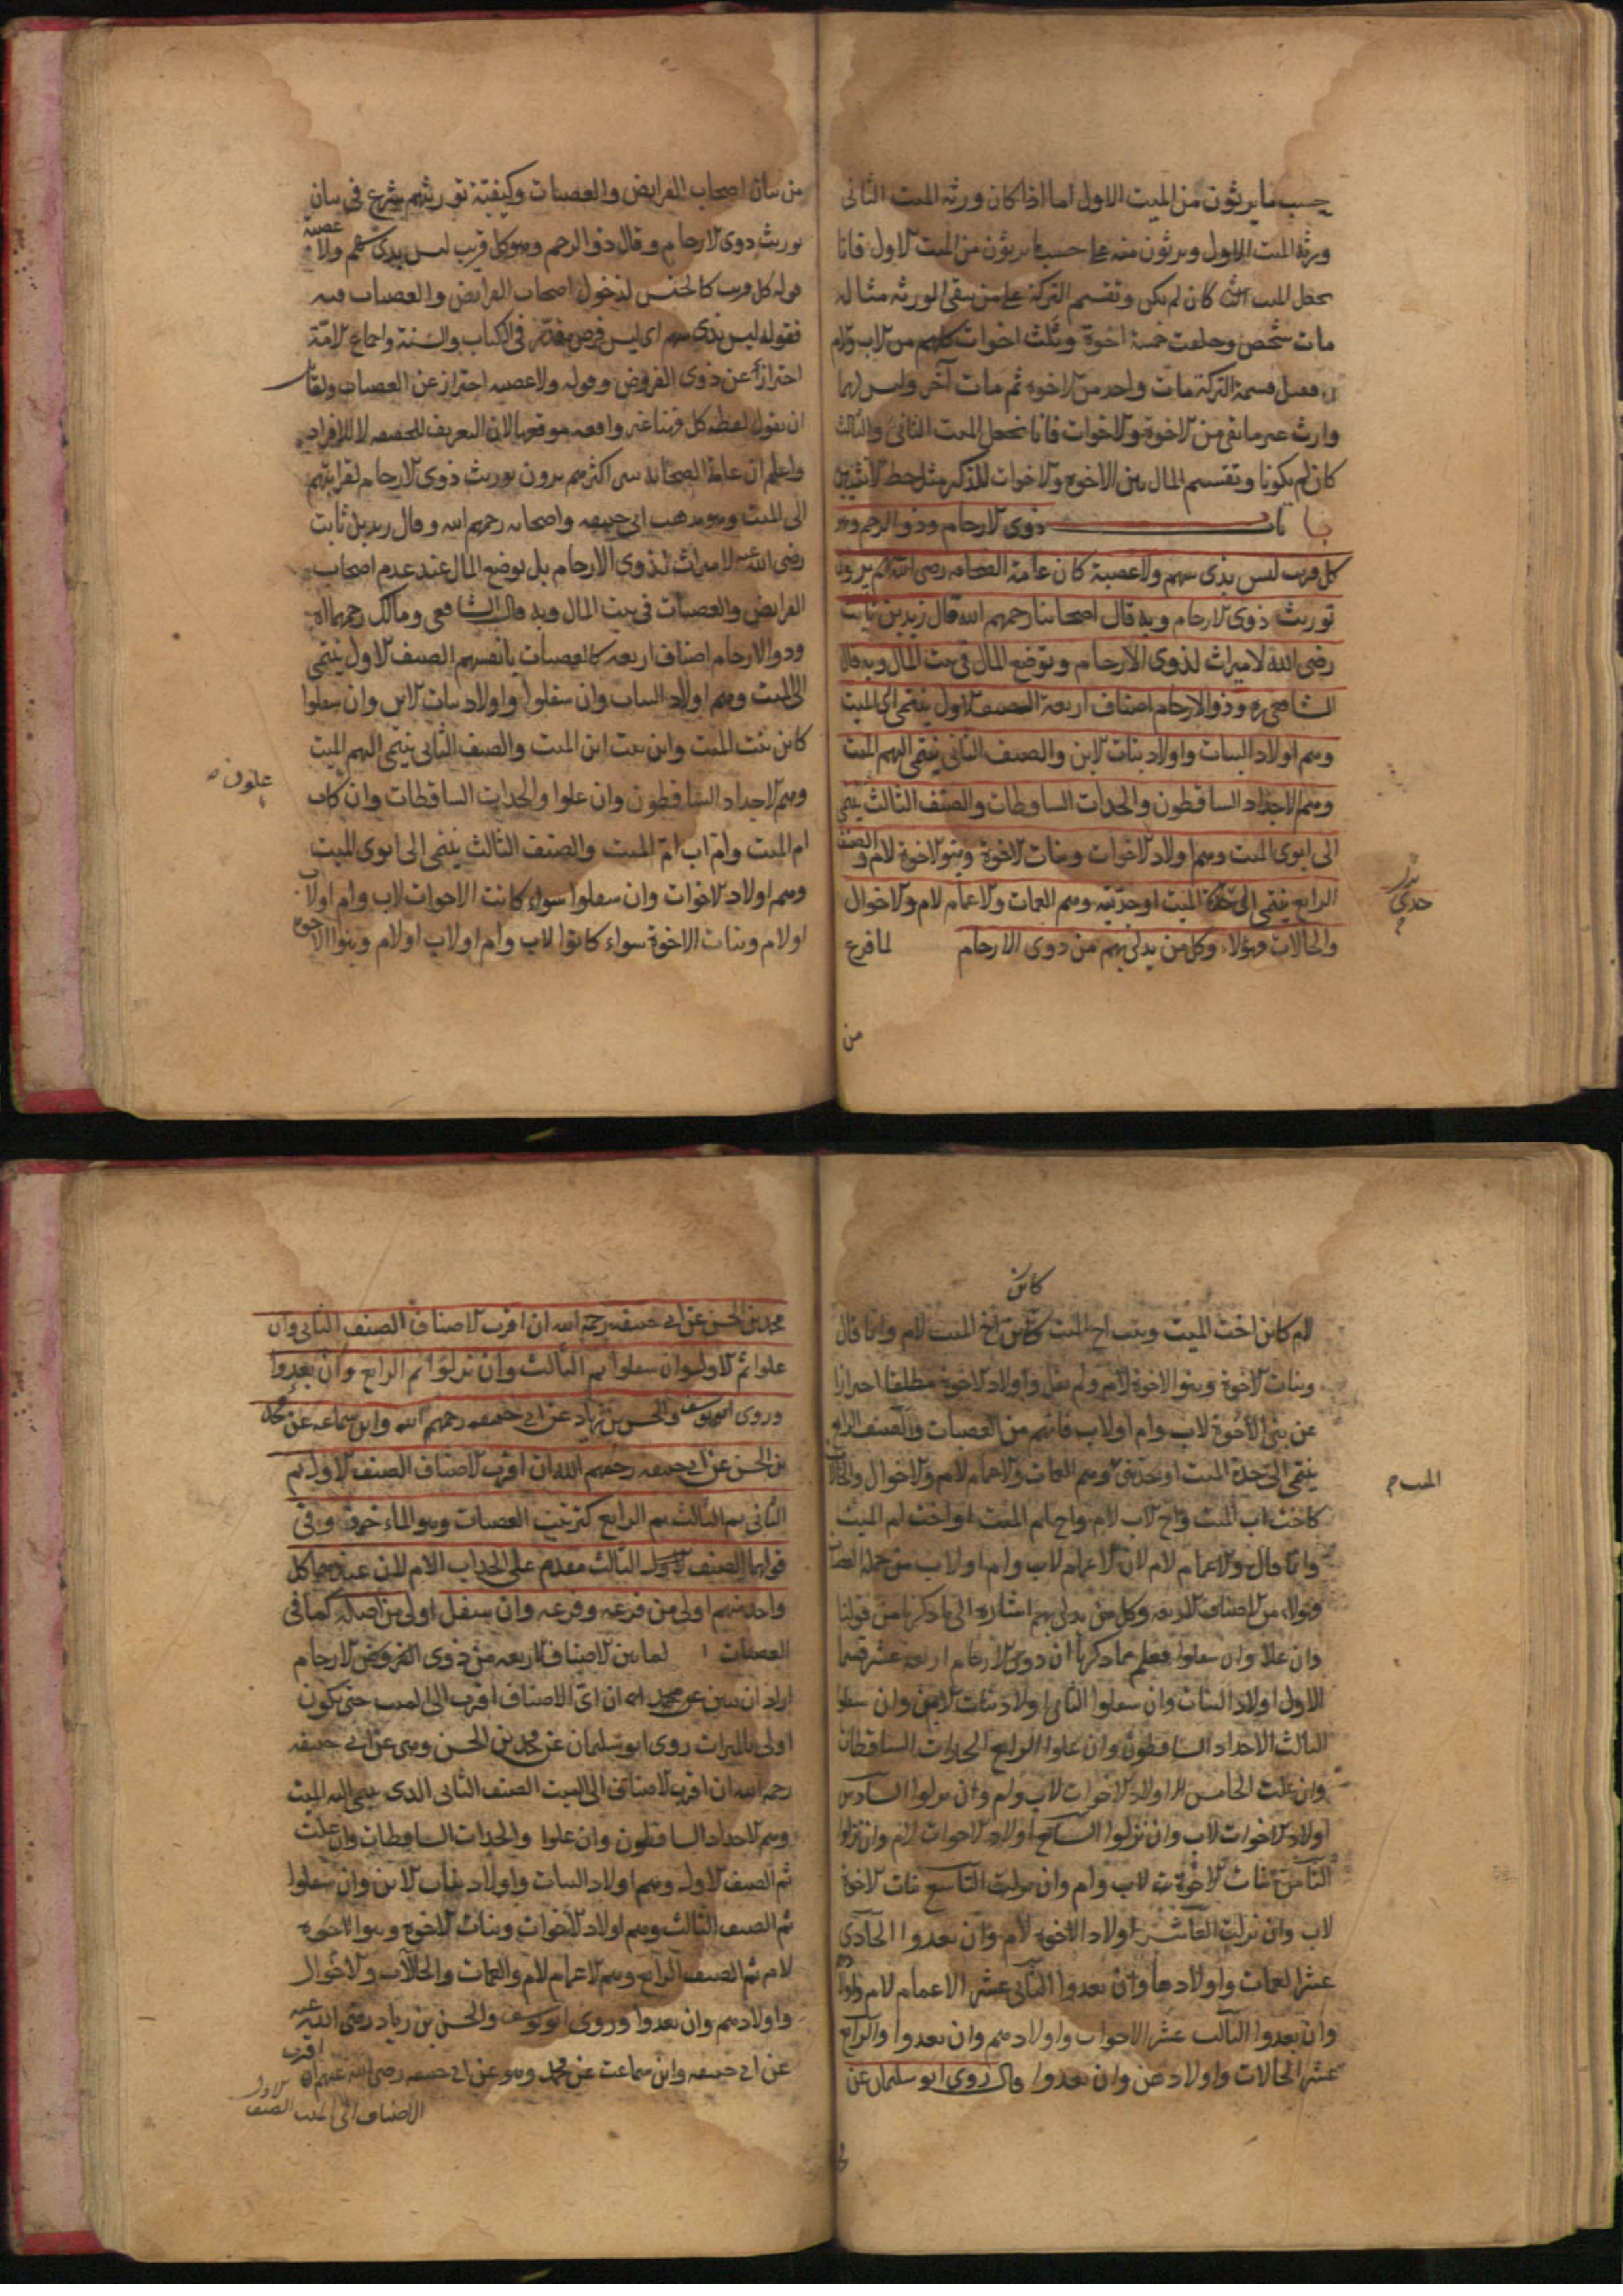 حسب ما يرثون من الميت الاول اما اذا كان ورثة الميت الثانى
ورثة الميت الاول ويرثون منه على حسب ما يرثون من الميت الاول فانا
نجعل الميت الثانى كان لم يكن وتقسم التركة على من بقى الورثة مثاله
مات شخص وخلفت خمسة اخوة وثلث اخوات كلهم من لاب ولام
قبل قسمة التركة مات واحد من الاخوة ثم مات آخر وليس لهما
وارث غير ما بقى من الاخوة والاخوات فانا نجعل الميت الثانى والثالث
كان لم يكونا وتقسم المال بين الاخوة والاخوات للذكر مثل حظ الانثيين
باب ذوى الارحام وذو الرحم وهو
كل قريب ليس بذى سهم ولا عصبة كان عامة الصحابة رضى الله عنهم يرون
توريث ذوى الارحام وبه قال اصحابنا رحمهم الله قال زيد بن ثابت
رضى الله لا ميراث لذوى الارحام ويوضع المال فى بيت المال وبه قال
الشافعى ره وذو الارحام اصناف اربعة الصنف الاول ينتمى الى الميت
وهم اولاد البنات واولاد بنات الابن والصنف الثانى ينتمى اليهم الميت
وهم الاجداد الساقطون والجدات الساقطات والصنف الثالث ينتمى
الى ابوى الميت وهم اولاد الاخوات وبنات الاخوة وبنو الاخوة لام والصنف
الرابع ينتمى الى جدى الميت او جدتيه وهم العمات والاعمام لام والاخوال
والخالات فهؤلاء وكل من يدلى بهم من ذوى الارحام لما فرغ
من
جدى
من بيان اصحاب الفرايض والعصبات وكيفية توريثهم شرع فى بيان
توريث ذوى الارحام وقال ذو الرحم وهو كل قريب ليس بذى سهم ولا عصبة
قوله كل قريب كالجنس لدخول اصحاب الفرايض والعصبات فيه
فقوله ليس بذى سهم اى ليس فرض مقدر فى الكتاب والسنة واجماع الامة
احترازا عن ذوى الفروض وقوله ولا عصبة احتراز عن العصبات ولقائل
ان يقول لفظة كل هنا غير واقعة موقعها لان التعريف للحقيقة لا للافراد
واعلم ان عامة الصحابة اكثرهم يرون توريث ذوى الارحام لقرابتهم
الى الميت وهو مذهب ابى حنيفة واصحابه رحمهم الله وقال زيد بن ثابت
رضى الله عنه لا ميراث لذوى الارحام بل يوضع المال عند عدم اصحاب
الفرايض والعصبات فى بيت المال وبه قال الشافعى ومالك رحمهما الله
وذو الارحام اصناف اربعة كالعصبات بانفسهم الصنف الاول ينتمى
الى الميت وهم اولاد البنات وان سفلوا واولاد بنات الابن وان سفلوا
كابن بنت الميت وابن بنت ابن الميت والصنف الثانى ينتمى اليهم الميت
وهم الاجداد الساقطون وان علوا والجدات الساقطات وان كاب
علون
ام الميت وام اب ام الميت والصنف الثالث ينتمى الى ابوى الميت
وهم اولاد الاخوات وان سفلوا سواء كانت الاخوات لاب وام او لاب
او لام وبنات الاخوة سواء كانوا لاب وام او لاب او لام وبنوا الاخوة
كابن
لام كابن اخت الميت وبنت اخ الميت وابن اخ الميت لام وانما قال
وبنات الاخوة وبنو الاخوة لام ولم يقل واولاد الاخوة مطلقا احترازا
عن بنى الاخوة لاب وام او لاب فانهم من العصبات والصنف الرابع
ينتمى الى جدى الميت او جدتيه وهم العمات والاعمام لام والاخوال والخالات
الميت
كاخت اب الميت واخ الاب لام واخ ام الميت او اخت ام الميت
وانما قال والاعمام لام لان الاعمام لاب وام او لاب من جملة العصبات
فهؤلاء من الاصناف الاربعة وكل من يدلى بهم اشارة الى ما ذكرنا من قولنا
وان علا وان سفلوا فعلم مما ذكرنا ان ذوى الارحام اربعة عشر قسما
الاول اولاد البنات وان سفلوا الثانى اولاد بنات الابن وان سفلوا
الثالث الاجداد الساقطون وان علوا الرابع الجدات الساقطات
وان علت الخامس اولاد الاخوات لاب وام وان نزلوا السادس
اولاد الاخوات لاب وان نزلوا السابع اولاد الاخوات لام وان نزلوا
الثامن بنات الاخوة لاب وام وان نزلت التاسع بنات الاخوة
لاب وان نزلت العاشر اولاد الاخوة لام وان بعدوا الحادى
عشر العمات واولادها وان بعدوا الثانى عشر الاعمام لام واولادهم
وان بعدوا الثالث عشر الاخوات واولادهم وان بعدوا والرابع
عشر الخالات واولادهن وان بعدوا قال روى ابو سليمان عن
محمد بن الحسن عن ابى حنيفة رحمه الله ان اقرب الاصناف الصنف الثانى وان
علوا ثم الاول وان سفلوا ثم الثالث وان نزلوا ثم الرابع وان بعدوا
وروى ابو يوسف والحسن بن زياد عن ابى حنيفة رحمهم الله وابن سماعة عن محمد
بن الحسن عن ابى حنيفة رحمهم الله ان اقرب الاصناف الصنف الاول ثم
الثانى ثم الثالث ثم الرابع كترتيب العصبات وهو الماخوذ وفى
قولهما الصنف الثالث مقدم على الجد اب الام لان عندهما كل
واحد منهم اولى من فرعه وفرعه وان سفل اولى من اصله كما فى
العصبات لما بين الاصناف الاربعة من ذوى الفروض الارحام
اراد ان يبين ان اى الاصناف اقرب الى الميت حتى يكون
اولى بالميراث روى ابو سليمان عن محمد بن الحسن وهى عن ابى حنيفة
رحمه الله ان اقرب الاصناف الى الميت الصنف الثانى الذى ينتمى اليه الميت
وهم الاجداد الساقطون وان علوا والجدات الساقطات وان علت
ثم الصنف الاول وهم اولاد البنات واولاد بنات الابن وان سفلوا
ثم الصنف الثالث وهم اولاد الاخوات وبنات الاخوة وبنوا الاخوة
لام ثم الصنف الرابع وهم الاعمام لام والعمات والخالات والاخوال
واولادهم وان بعدوا وروى ابو يوسف والحسن بن زياد رضى الله عنه
عن ابى حنيفة وابن سماعة عن محمد وهو عن ابى حنيفة رضى الله عنهم ان اقرب
الاصناف الى الميت الصنف الاول